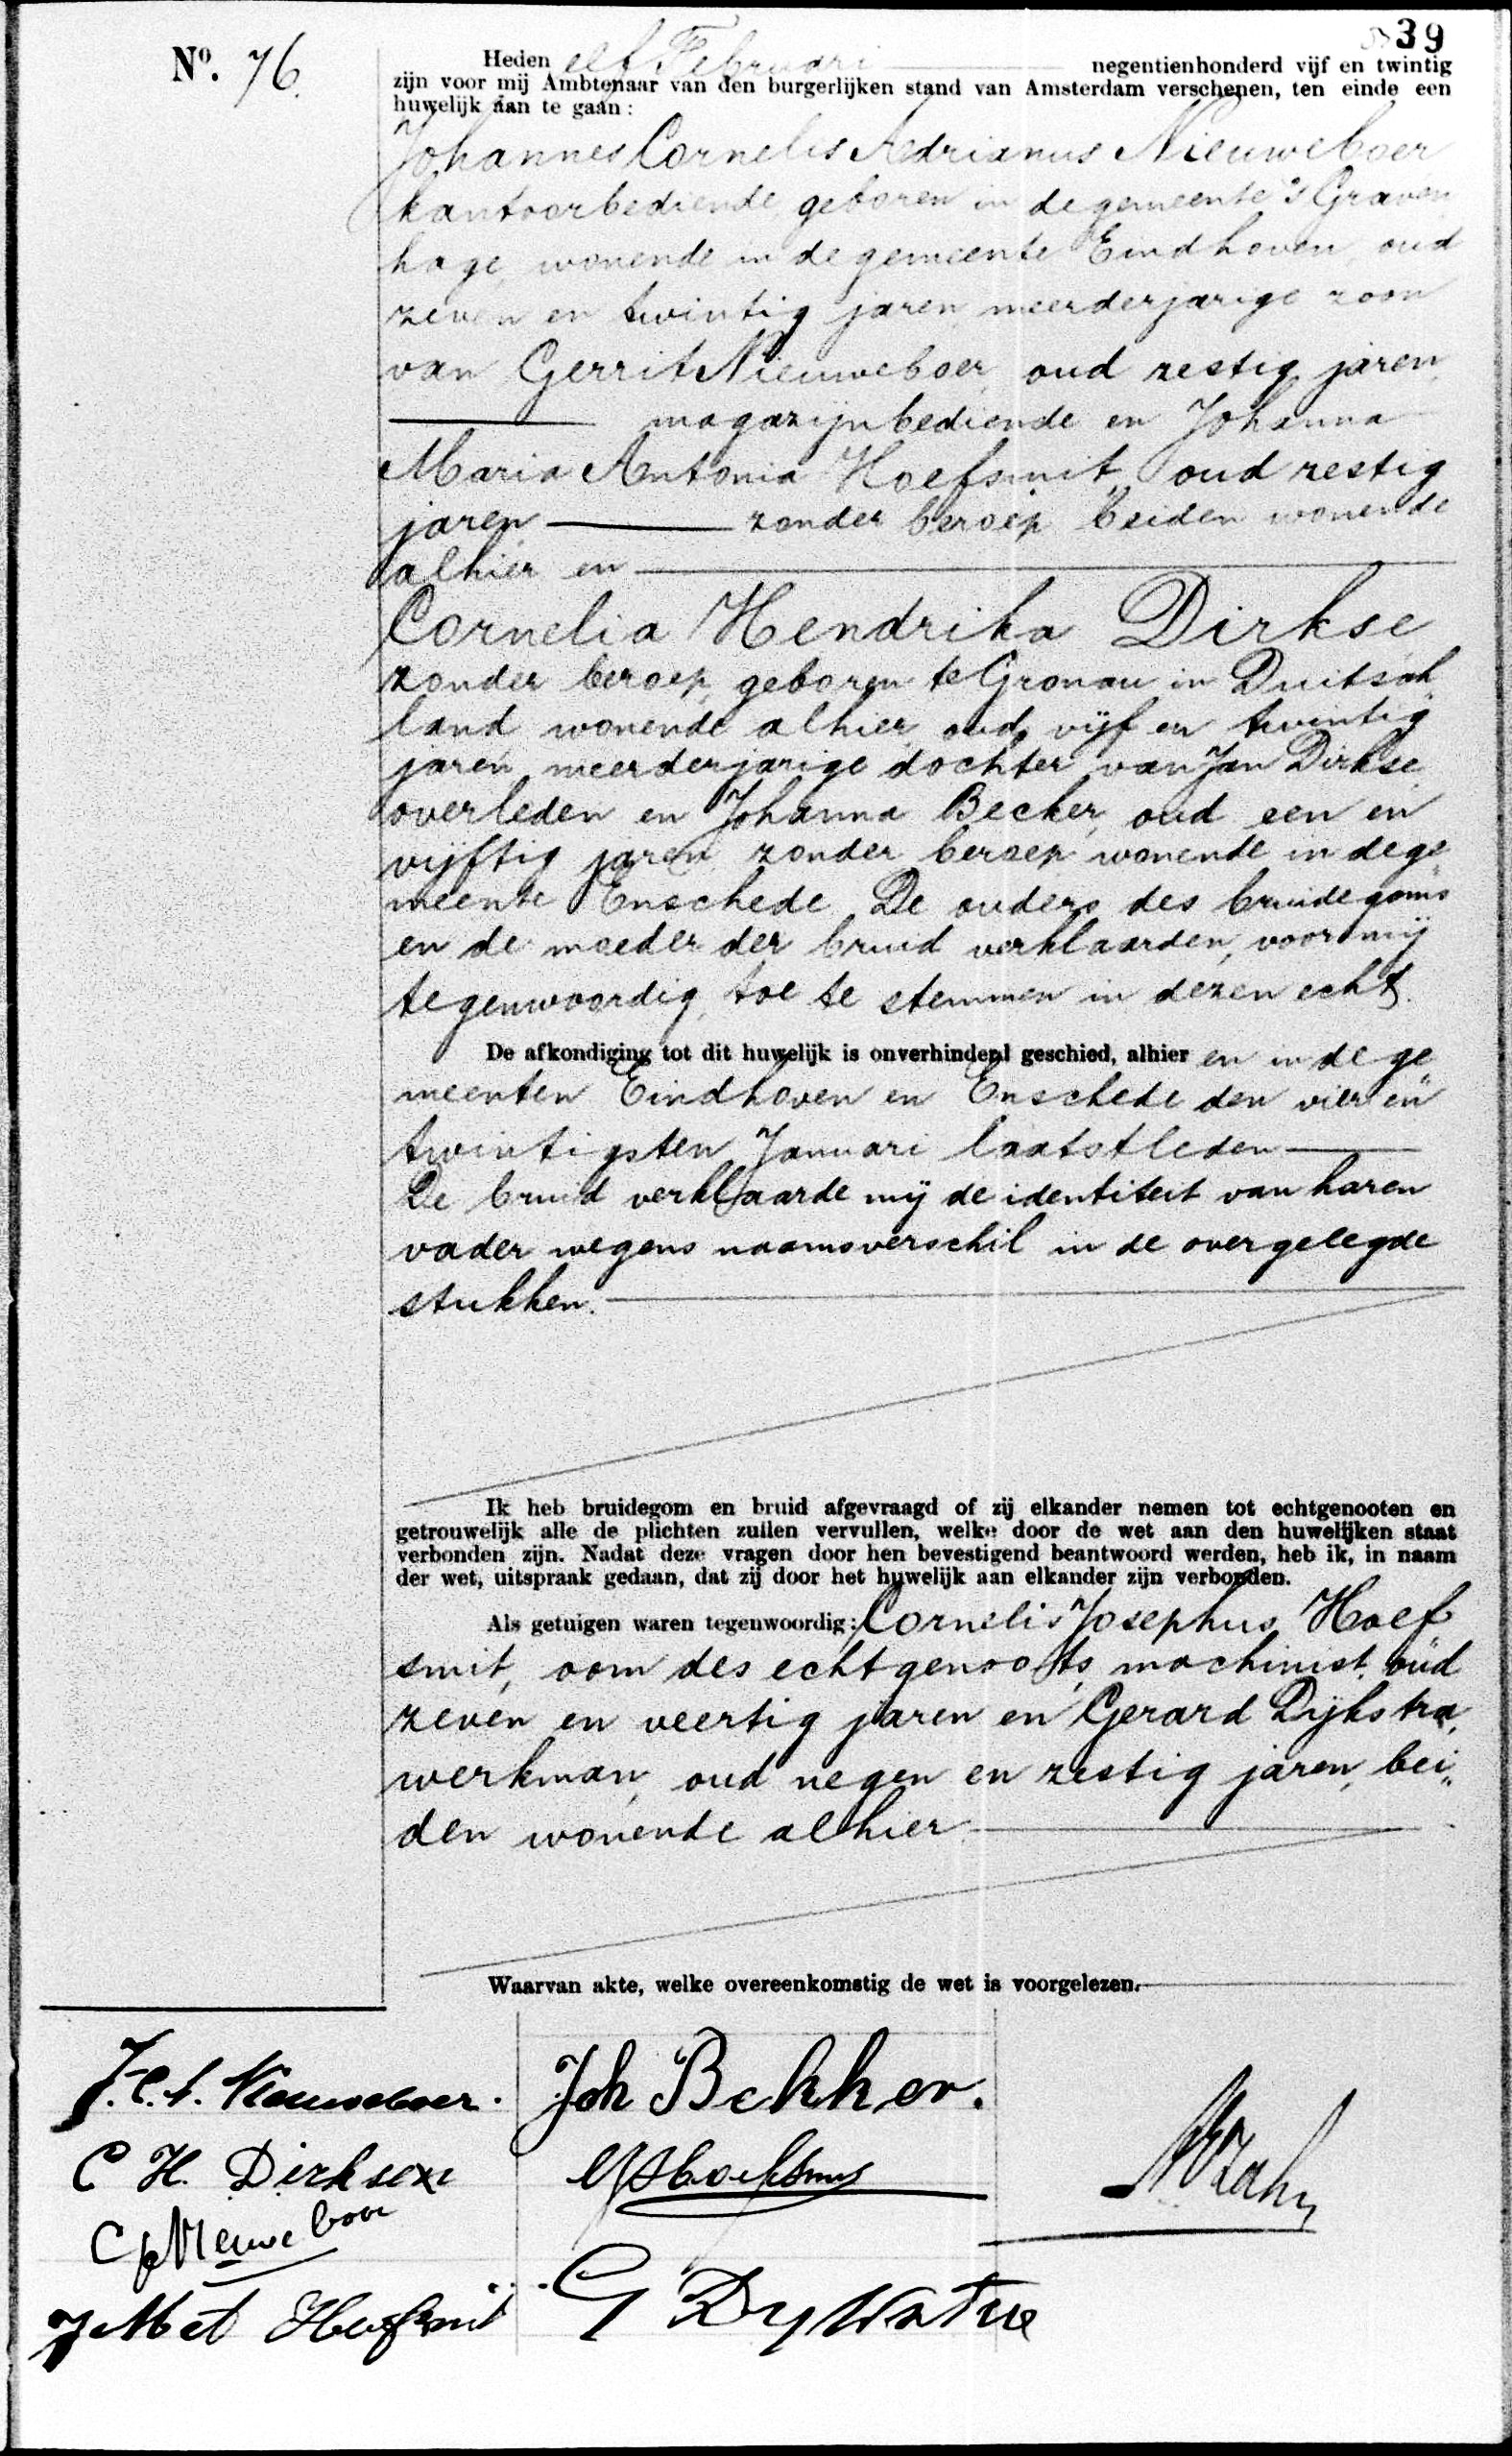 39
No. 76.
Heden elf Februari negentienhonderd vijf en twintig
zijn voor mij Ambtenaar van den burgerlijken stand van Amsterdam verschenen, ten einde een
huwelijk aan te gaan:
Johannes Cornelis Adrianus Nieuweboer
kantoorbediende, geboren in de gemeente 's Graven
hage, wonende in de gemeente Eindhoven, oud
zeven en twintig jaren, meerderjarige zoon
van Gerrit Nieuweboer, oud zestig jaren,
magazijnbediende en Johanna
Maria Antonia Hoefsmit, oud zestig
jaren zonder beroep, beiden wonende
alhier en
Cornelia Hendrika Dirkse
zonder beroep, geboren te Gronau in Duitsch
land wonende alhier, oud vijf en twintig
jaren, meerderjarige dochter van Jan Dirkse
overleden en Johanna Becker, oud een en
vijftig jaren zonder beroep wonende in de ge
meente Enschede. De ouders des bruidegoms
en de moeder der bruid verklaarden, voor mij
tegenwoordig, toe te stemmen in dezen echt.
De afkondiging tot dit huwelijk is onverhinderd geschied, alhier en in de ge
meenten Eindhoven en Enschede den vier en
twintigsten Januari laatstleden
De bruid verklaarde mij de identiteit van haren
vader wegens naamsverschil in de overgelegde
stukken.
Ik heb bruidegom en bruid afgevraagd of zij elkander nemen tot echtgenooten en
getrouwelijk alle de plichten zullen vervullen, welke door de wet aan den huwelijken staat
verbonden zijn. Nadat deze vragen door hen bevestigend beantwoord werden, heb ik, in naam
der wet, uitspraak gedaan, dat zij door het huwelijk aan elkander zijn verbonden.
Als getuigen waren tegenwoordig: Cornelis Josephus Hoef
smit, oom des echtgenoots, machinist, oud
zeven en veertig jaren en Gerard Dijkstra,
werkman, oud negen en zestig jaren, bei„
den wonende alhier.
Waarvan akte, welke overeenkomstig de wet is voorgelezen.
J.C.A. Nieuweboer. Joh Bekker.
C H. Dirksen
Nieuweboer
Hoefsmit G Dykstra